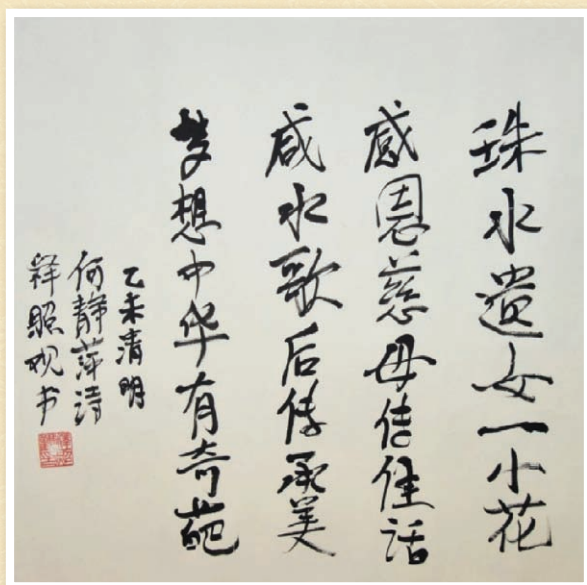 珠水遗女一小花
感恩慈母传佳话
咸水歌后传承美
梦想中华有奇葩
乙未清明
何静萍诗
释照观书